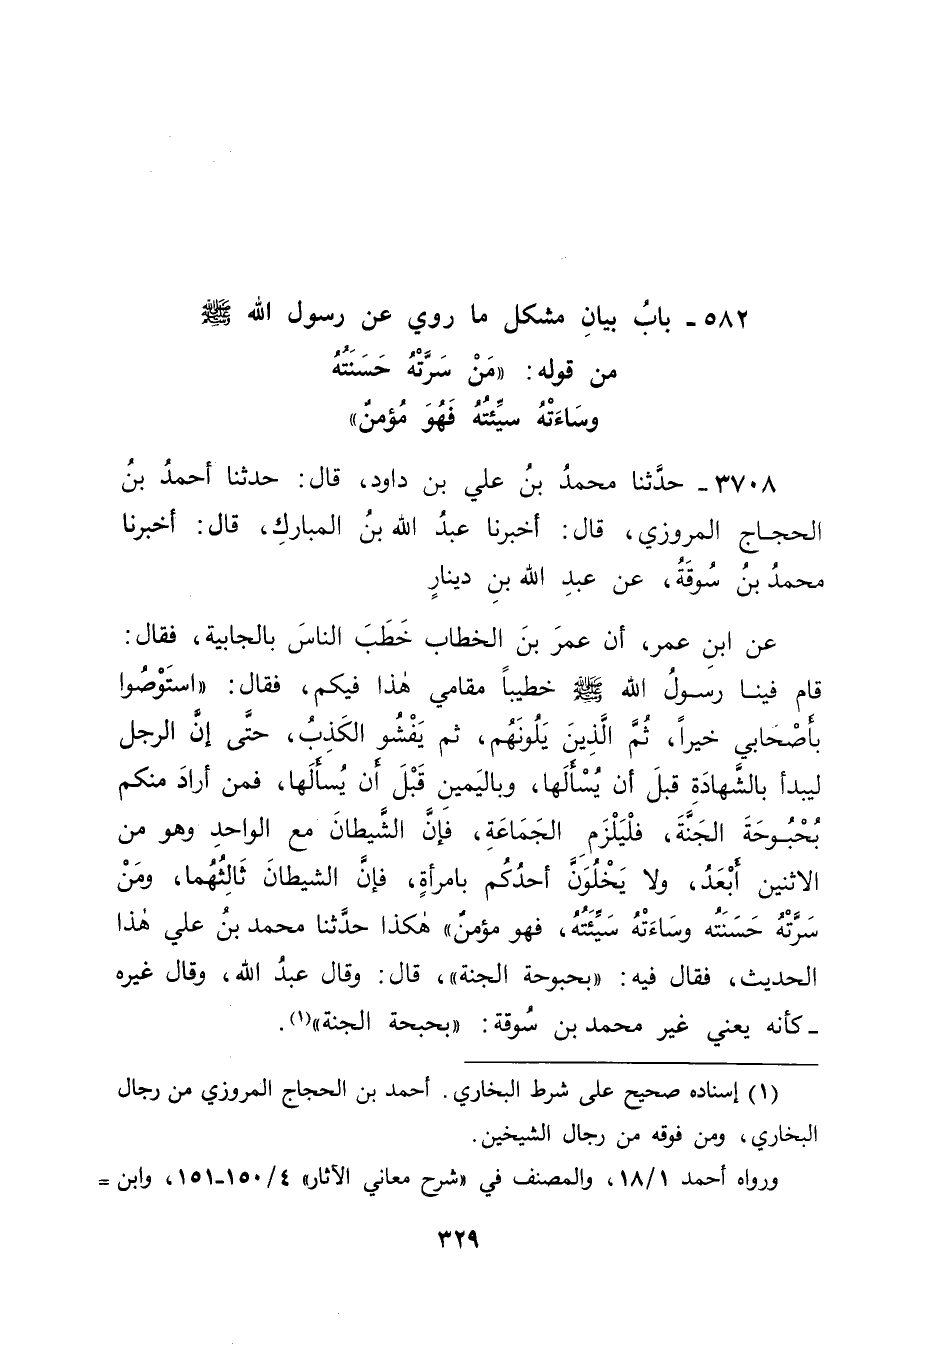 ٥٨٢ـ بابُ بيانِ مشكل ما روي عن رسول الله ﷺ
من قوله: «مَنْ سَرَّتْهُ حَسَنَتُهُ
وسَاءَتْهُ سيِّئتُهُ فَهُوَ مُؤمنٌ»
٣٧٠٨ـ حدَّثنا محمدُ بنُ علي بن داود، قال: حدثنا أحمدُ بنُ
الحجـاج المروزي، قال: أخبرنا عبدُ الله بنُ المباركِ، قال: أخبرنا
محمدُ بنُ سُوقَةُ، عن عبدِ الله بنِ دينارٍ
عن ابنِ عمر، أن عمرَ بنَ الخطاب خَطَبَ الناسَ بالجابية، فقال:
قام فينـا رسـولُ الله ﷺ خطيباً مقامي هٰذا فيكم، فقال: «استَوْصُوا
بأَصْحَابي خيراً، ثُمَّ الَّذِينَ يَلُونَهُم، ثم يَفْشُو الكَذِبُ، حتَّى إنَّ الرجل
ليبدأ بالشَّهادَةِ قبلَ أن يُسْأَلَها، وباليَمينِ قَبْلَ أن يُسأَلَها، فمن أرادَ منكم
بُحْبُـوحَةَ الجَنَّةَ، فلْيَلْزَمِ الجَمَاعَةِ، فإنَّ الشَّيطانَ مع الواحدِ وهو من
الاثنين أَبْعَدُ، ولا يَخْلُوَنَّ أحدُكُم بامرأةٍ، فإنَّ الشيطانَ ثَالِثُهُما، ومَنْ
سَرَّتْهُ حَسَنَتُه وسَاءَتْهُ سَيِّئَتُهُ، فهو مؤمنٌ» هٰكذا حدَّثنا محمد بنُ علي هٰذا
الحديث، فقال فيه: «بحبوحة الجنة»، قال: وقال عبدُ الله، وقال غيره
ـ كأنه يعني غير محمد بن سُوقة: «بحبحة الجنة»(١).
(١) إسناده صحيح على شرط البخاري. أحمد بن الحجاج المروزي من رجال
البخاري، ومن فوقه من رجال الشيخين.
ورواه أحمد ١/١٨، والمصنف في «شرح معاني الآثار» ٤/١٥٠ـ١٥١، وابن =
٣٢٩